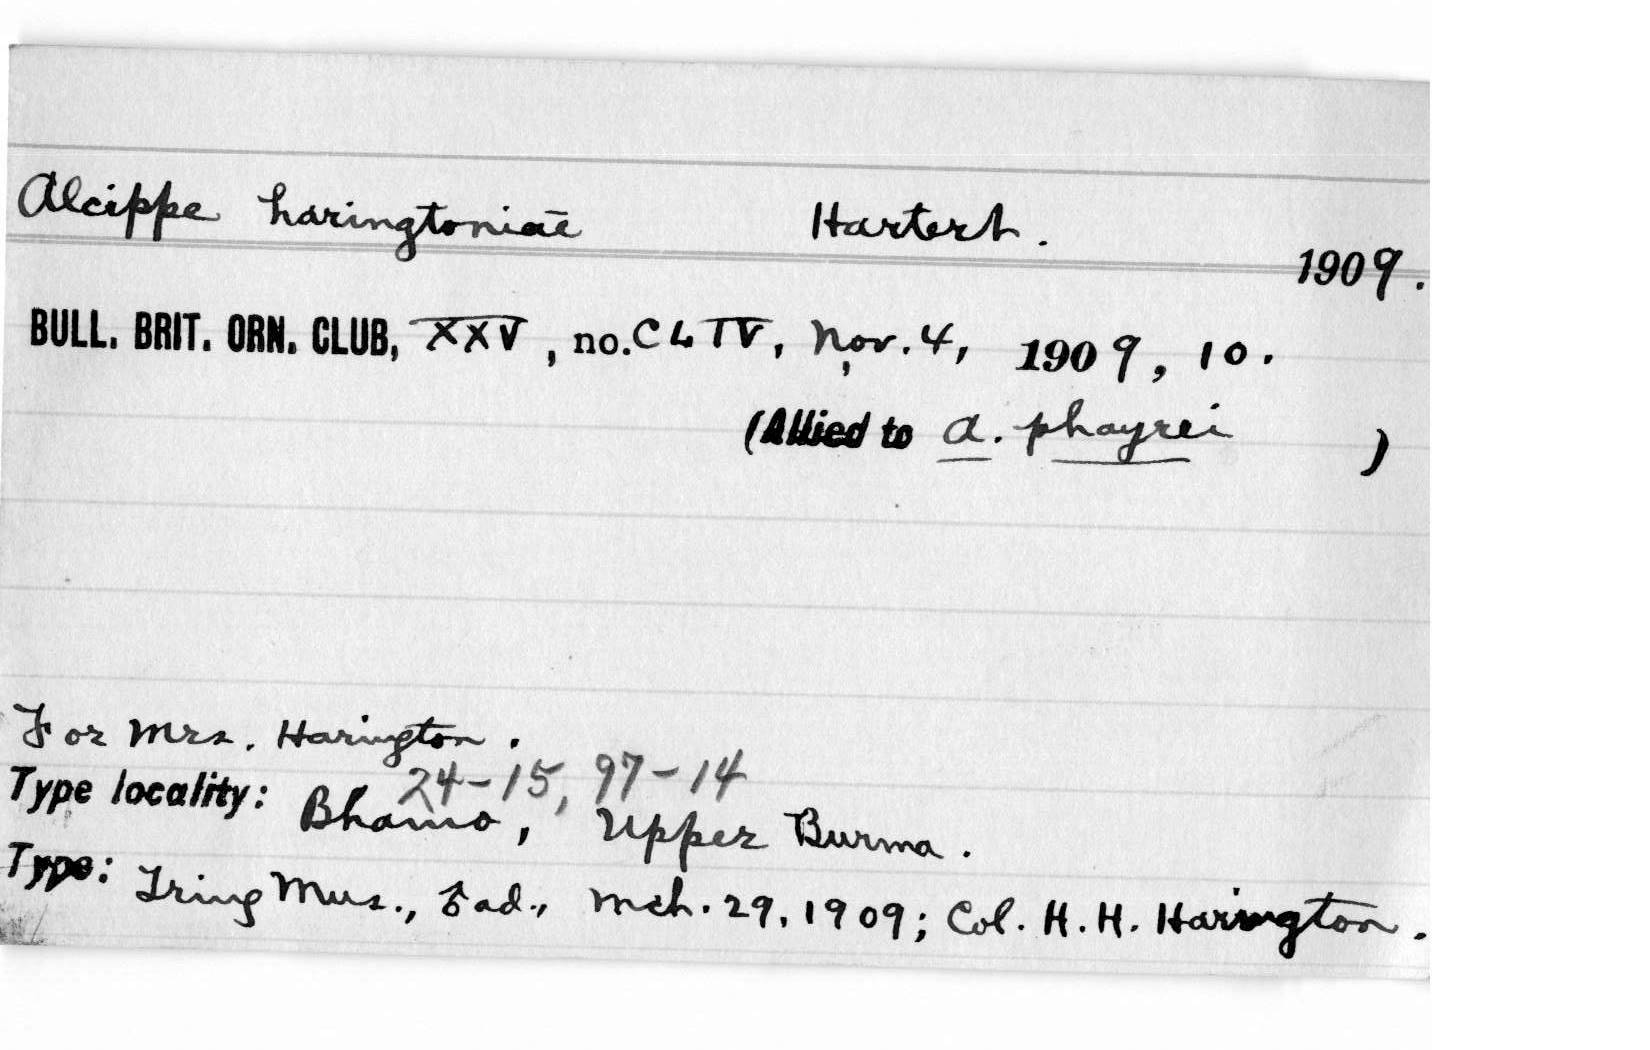 Alcippe haringtoniae Hartert.
1909.
BULL. BRIT. ORN. CLUB, XXV, no. CLIV, Nov. 4, 1909, 10.
(Allied to A. phayrei )
For Mrs. Harington.
24-15, 97-14
Type locality: Bhamo, Upper Burma.
Type: Tring Mus., ad., Mch. 29, 1909; Col. H. H. Harington.